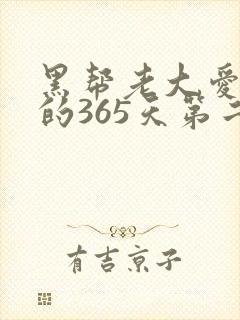 黑帮老大爱
的365天第二
有吉京子